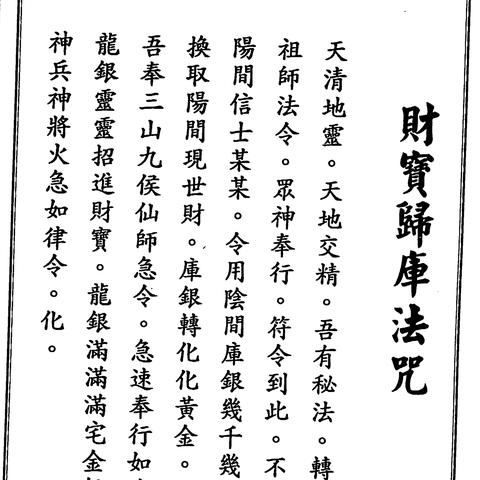 財寶歸庫法咒
天清地靈。天地交精。吾有秘法。轉
祖師法令。眾神奉行。符令到此。不
陽間信士某某。令用陰間庫銀幾千幾
換取陽間現世財。庫銀轉化化黃金。
吾奉三山九侯仙師急令。急速奉行如
龍銀靈靈招進財寶。龍銀滿滿滿宅金
神兵神將火急如律令。化。